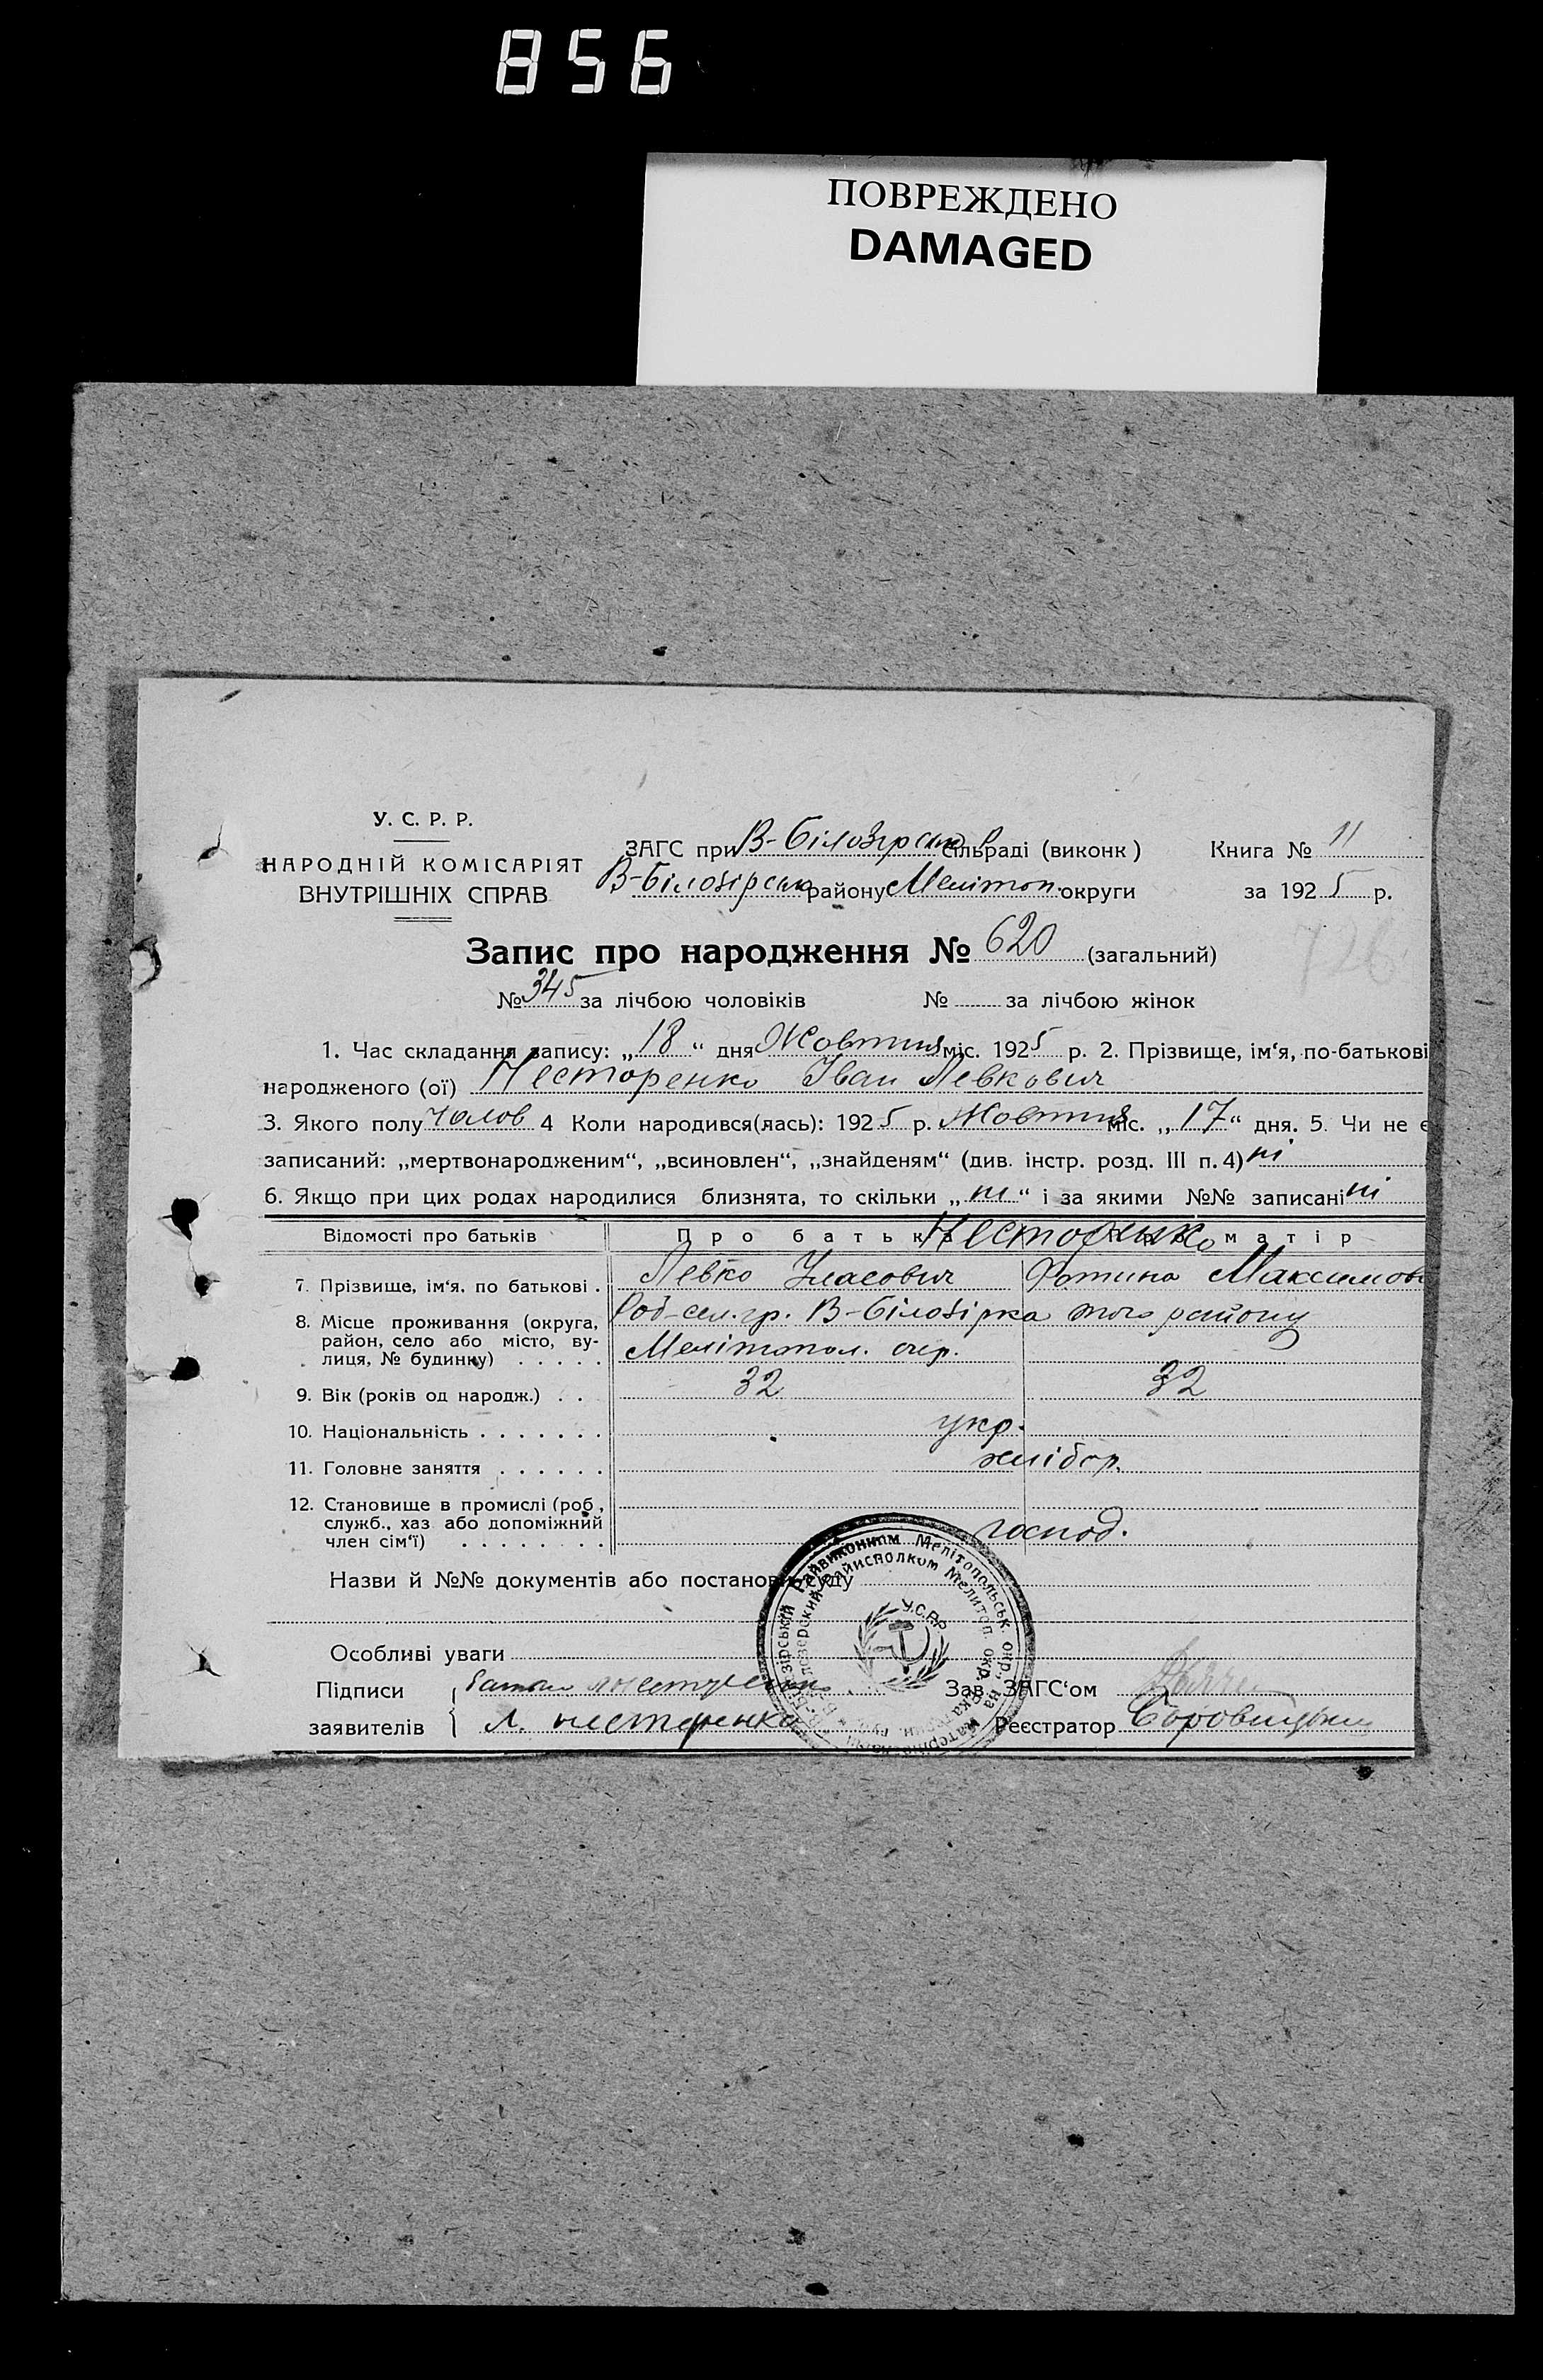 856
ПОВРЕЖДЕНО
DAMAGED
У. С. Р. Р.
НАРОДНІЙ КОМІСАРІЯТ
ВНУТРІШНІХ СПРАВ
ЗАГС при В-Білозірськ сільраді (виконк)
В-Білозірськ району Мелітоп. округи
Книга № 11
за 1925 р.
Запис про народження № 620 (загальний)
726
№ 345 за лічбою чоловіків № за лічбою жінок
1. Час складання запису: „18“ дня Жовтня міс. 1925 р. 2. Прізвище, ім‘я, по-батькові
народженого (ої) Несторенко Іван Левкович
3. Якого полу чолов 4 Коли народився(лась): 1925 р. Жовтня міс. „17“ дня. 5. Чи не є
записаний: „мертвонародженим“, „всиновлен“, „знайденям“ (див. інстр. розд. III п. 4) ні
6. Якщо при цих родах народилися близнята, то скільки „ні“ і за якими №№ записані ні
Відомості про батьків Про батька матір
Несторенко
7. Прізвище, ім‘я, по батькові . Левко Уласович Фотина Максимов
8. Місце проживання (округа, район, село або місто, вулиця, № будинку) . . . . . сел. гр. В-Білозірка того району
Мелітопол. окр.
9. Вік (років од народж.) . . 32 32
10. Національність . . . . . . . укр.
11. Головне заняття . . . . . . хлібор.
12. Становище в промислі (роб, служб., хаз або допоміжний член сім‘ї) . . . . . . . . господ.
Назви й №№ документів або постанови суду
Особливі уваги
У.С.Р.Р
Райвиконком Мелітопольськ. окр.
Райисполком Мелитоп. окр.
Підписи
заявителів
Л. нестеренко
Зав. ЗАГС‘ом
Реєстратор